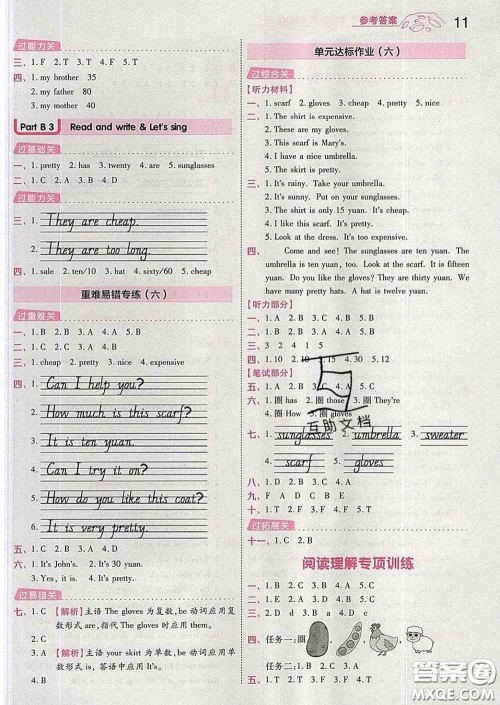 参考答案 11
过能力关
三、1. F 2. T 3. T 4. F
四、1. my brother 35
2. my father 80
3. my mother 40
Part B 3 Read and write & Let's sing
过基础关
一、1. pretty 2. has 3. twenty 4. are 5. sunglasses
二、1. C 2. C 3. D 4. A
过能力关
三、1. They are cheap.
2. They are too long.
四、1. sale 2. ten 3. hat 4. sixty/60 5. cheap
重难易错专练（六）
过重难关
一、1. B 2. B 3. A 4. A 5. B
二、1. A 2. C 3. B 4. D
三、1. cheap 2. pretty 3. nice 4. expensive
四、1. Can I help you?
2. How much is this scarf?
3. It is ten yuan.
4. Can I try it on?
5. How do you like this coat?
6. It is very pretty.
五、1. C 2. B 3. A 4. D
六、1. It's John's. 2. It's 30 yuan.
3. Yes, it is. 4. It's cheap.
过易错关
七、1. C 【解析】主语 The gloves 为复数,be 动词应用复
数形式 are,指代 The gloves 时应用 them。
2. C
3. A 【解析】主语 your skirt 为单数,be 动词应用单数
形式 is,答语中应用 It's。
4. B
单元达标作业（六）
过综合关
【听力材料】
一、1. scarf 2. gloves 3. cheap 4. pretty
二、1. The shirt is expensive.
2. Can I help you?
3. These are my gloves.
4. This scarf is Mary's.
5. The skirt is pretty.
三、1. It's rainy. Take your umbrella.
2. It's sunny. Put on your sunglasses.
3. The shirt is only 15 yuan. It's cheap.
4. I like this scarf. It's nice.
5. Look at the dress. It's too expensive.
四、 Come and see! The sunglasses are ten yuan. The
umbrella is ten yuan, too. Look at the scarf. It is fifteen
yuan. Do you like the gloves? They are thirty yuan. We
have many pretty hats. A hat is twelve yuan.
【听力部分】
一、1. A 2. B 3. B 4. A
二、1. A 2. B 3. B 4. A 5. A
三、3 2 4 1 5
四、1. 10 2. 10 3. 15 4. 30 5. 12
【笔试部分】
五、1. C 2. C 3. A 4. C
六、1. 圈 has 2. 圈 those 3. 圈 They're
4. 圈 How 5. 圈 gloves
互助文档
七、1. sunglasses 2. umbrella 3. sweater
4. scarf 5. gloves
八、1. D 2. A 3. B 4. C 5. E
九、F A D C B E
十、1. T 2. F 3. T 4. T 5. F
过拓展关
十一、1. C 2. B 3. D 4. A
阅读理解专项训练
一、1. B 2. B 3. A 4. A
二、1. F 2. T 3. T 4. F 5. T
三、1. D 2. d 3. a 4. B 5. c
四、任务一:圈
任务二:1. B 2. B
答案圈
MXQE.COM